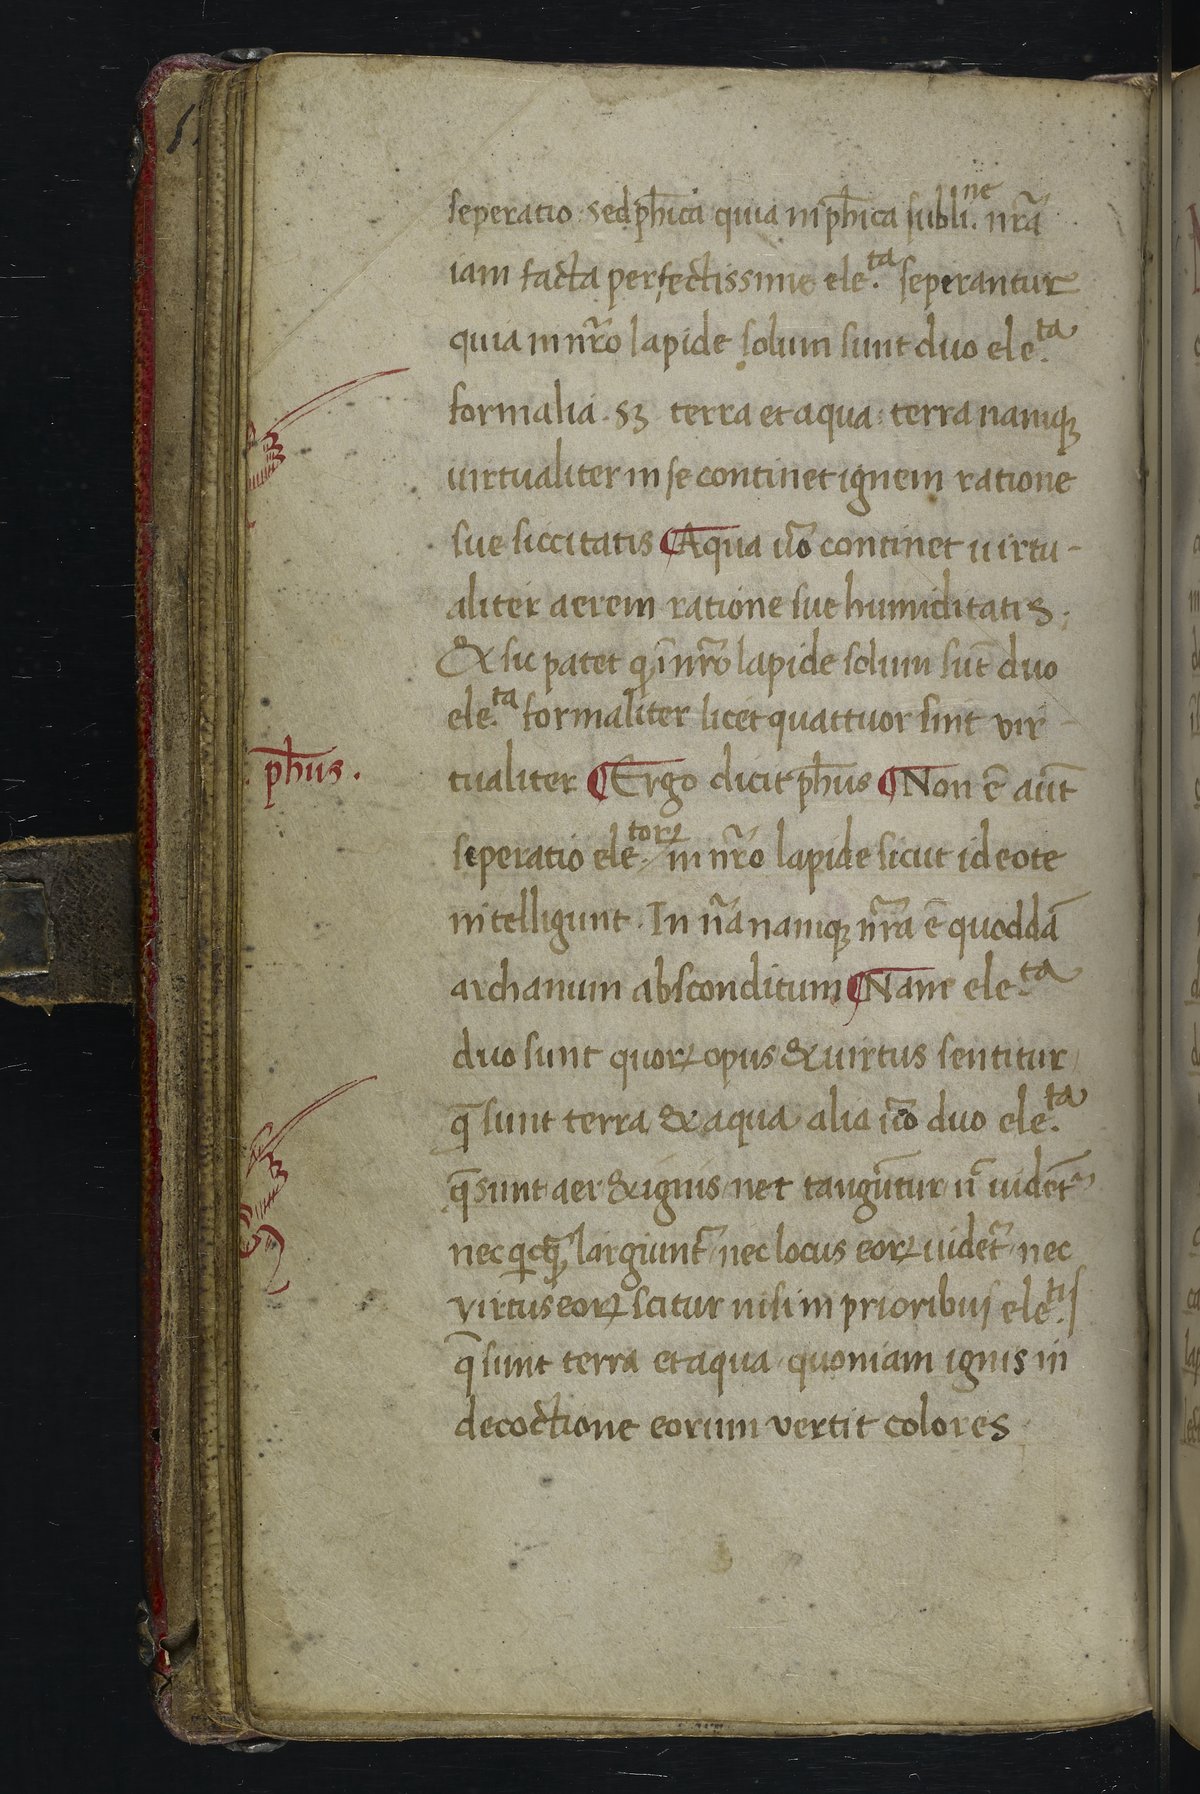 seperatio. sed ph̄ica quia in ph̄ica subli.ne nr̄a
iam facta perfectissime ele.ta seperantur
quia in nr̄o lapide solum sunt duo ele.ta
formalia. sʒ terra et aqua: terra namqʒ
uirtualiter in se continet ignem ratione
sue siccitatis ¶ Aqua ūo continet uirtu-
aliter aerem ratione sue humiditatis.
& sic patet ꝙ ī nr̄o lapide solum sūt duo
ele.ta formaliter licet quattuor sint vir-
phūs.
tualiter ¶ Ergo dicit phūs ¶ Non ē aūt
seperatio ele.torꝝ in nr̄o lapide sicut ideote
intelligunt. In nr̄a namqʒ nr̄a ē quoddā
archanum absconditum ¶ Nam ele.ta
duo sunt quorꝝ opus & uirtus sentitur
q̄ sunt terra & aqua alia ūo duo ele.ta
q̄ sunt aer & ignis nec tangūtur n̄ uidēt᷑
nec largiunt᷑ nec locus eorꝝ uidet᷑ nec
virtus eorꝝ scitur nisi in prioribus ele.tis
q̄ sunt terra et aqua quoniam ignis in
decoctione eorum vertit colores